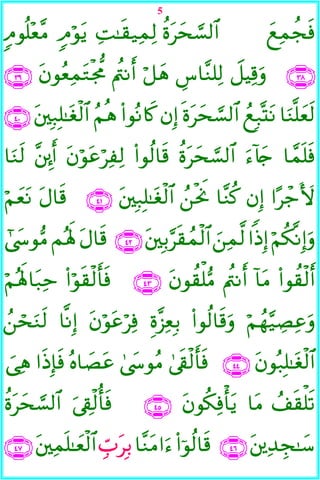 5
فَجُمِعَ ٱلسَّحَرَةُ لِمِيقَـٰتِ يَوْمٍ مَّعْلُومٍ
﴿٣٨﴾ وَقِيلَ لِلنَّاسِ هَلْ أَنتُم مُّجْتَمِعُونَ ﴿٣٩﴾
لَعَلَّنَا نَتَّبِعُ ٱلسَّحَرَةَ إِن كَانُوا۟ هُمُ ٱلْغَـٰلِبِينَ ﴿٤٠﴾
فَلَمَّا جَآءَ ٱلسَّحَرَةُ قَالُوا۟ لِفِرْعَوْنَ أَئِنَّ لَنَا
لَأَجْرًا إِن كُنَّا نَحْنُ ٱلْغَـٰلِبِينَ ﴿٤١﴾ قَالَ نَعَمْ
وَإِنَّكُمْ إِذًا لَّمِنَ ٱلْمُقَرَّبِينَ ﴿٤٢﴾ قَالَ لَهُم مُّوسَىٰٓ
أَلْقُوا۟ مَآ أَنتُم مُّلْقُونَ ﴿٤٣﴾ فَأَلْقَوْا۟ حِبَالَهُمْ
وَعِصِيَّهُمْ وَقَالُوا۟ بِعِزَّةِ فِرْعَوْنَ إِنَّا لَنَحْنُ
ٱلْغَـٰلِبُونَ ﴿٤٤﴾ فَأَلْقَىٰ مُوسَىٰ عَصَاهُ فَإِذَا هِىَ
تَلْقَفُ مَا يَأْفِكُونَ ﴿٤٥﴾ فَأُلْقِىَ ٱلسَّحَرَةُ
سَـٰجِدِينَ ﴿٤٦﴾ قَالُوٓا۟ ءَامَنَّا بِرَبِّ ٱلْعَـٰلَمِينَ ﴿٤٧﴾